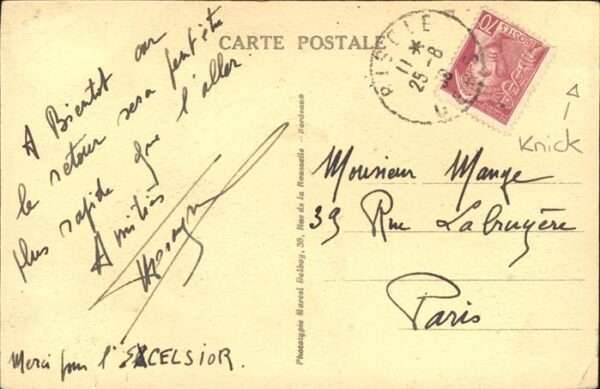 CARTE POSTALE
A Bientôt car
le retour sera peut être
plus rapide que l'aller.
Amitiés
Merci pour l'EXCELSIOR.
Phototypie Marcel Delboy, 39, Rue de la Rousselle - Bordeaux
11 *
25-8
70
POSTES
Knick
Monsieur Mange
39 Rue Labruyère
Paris